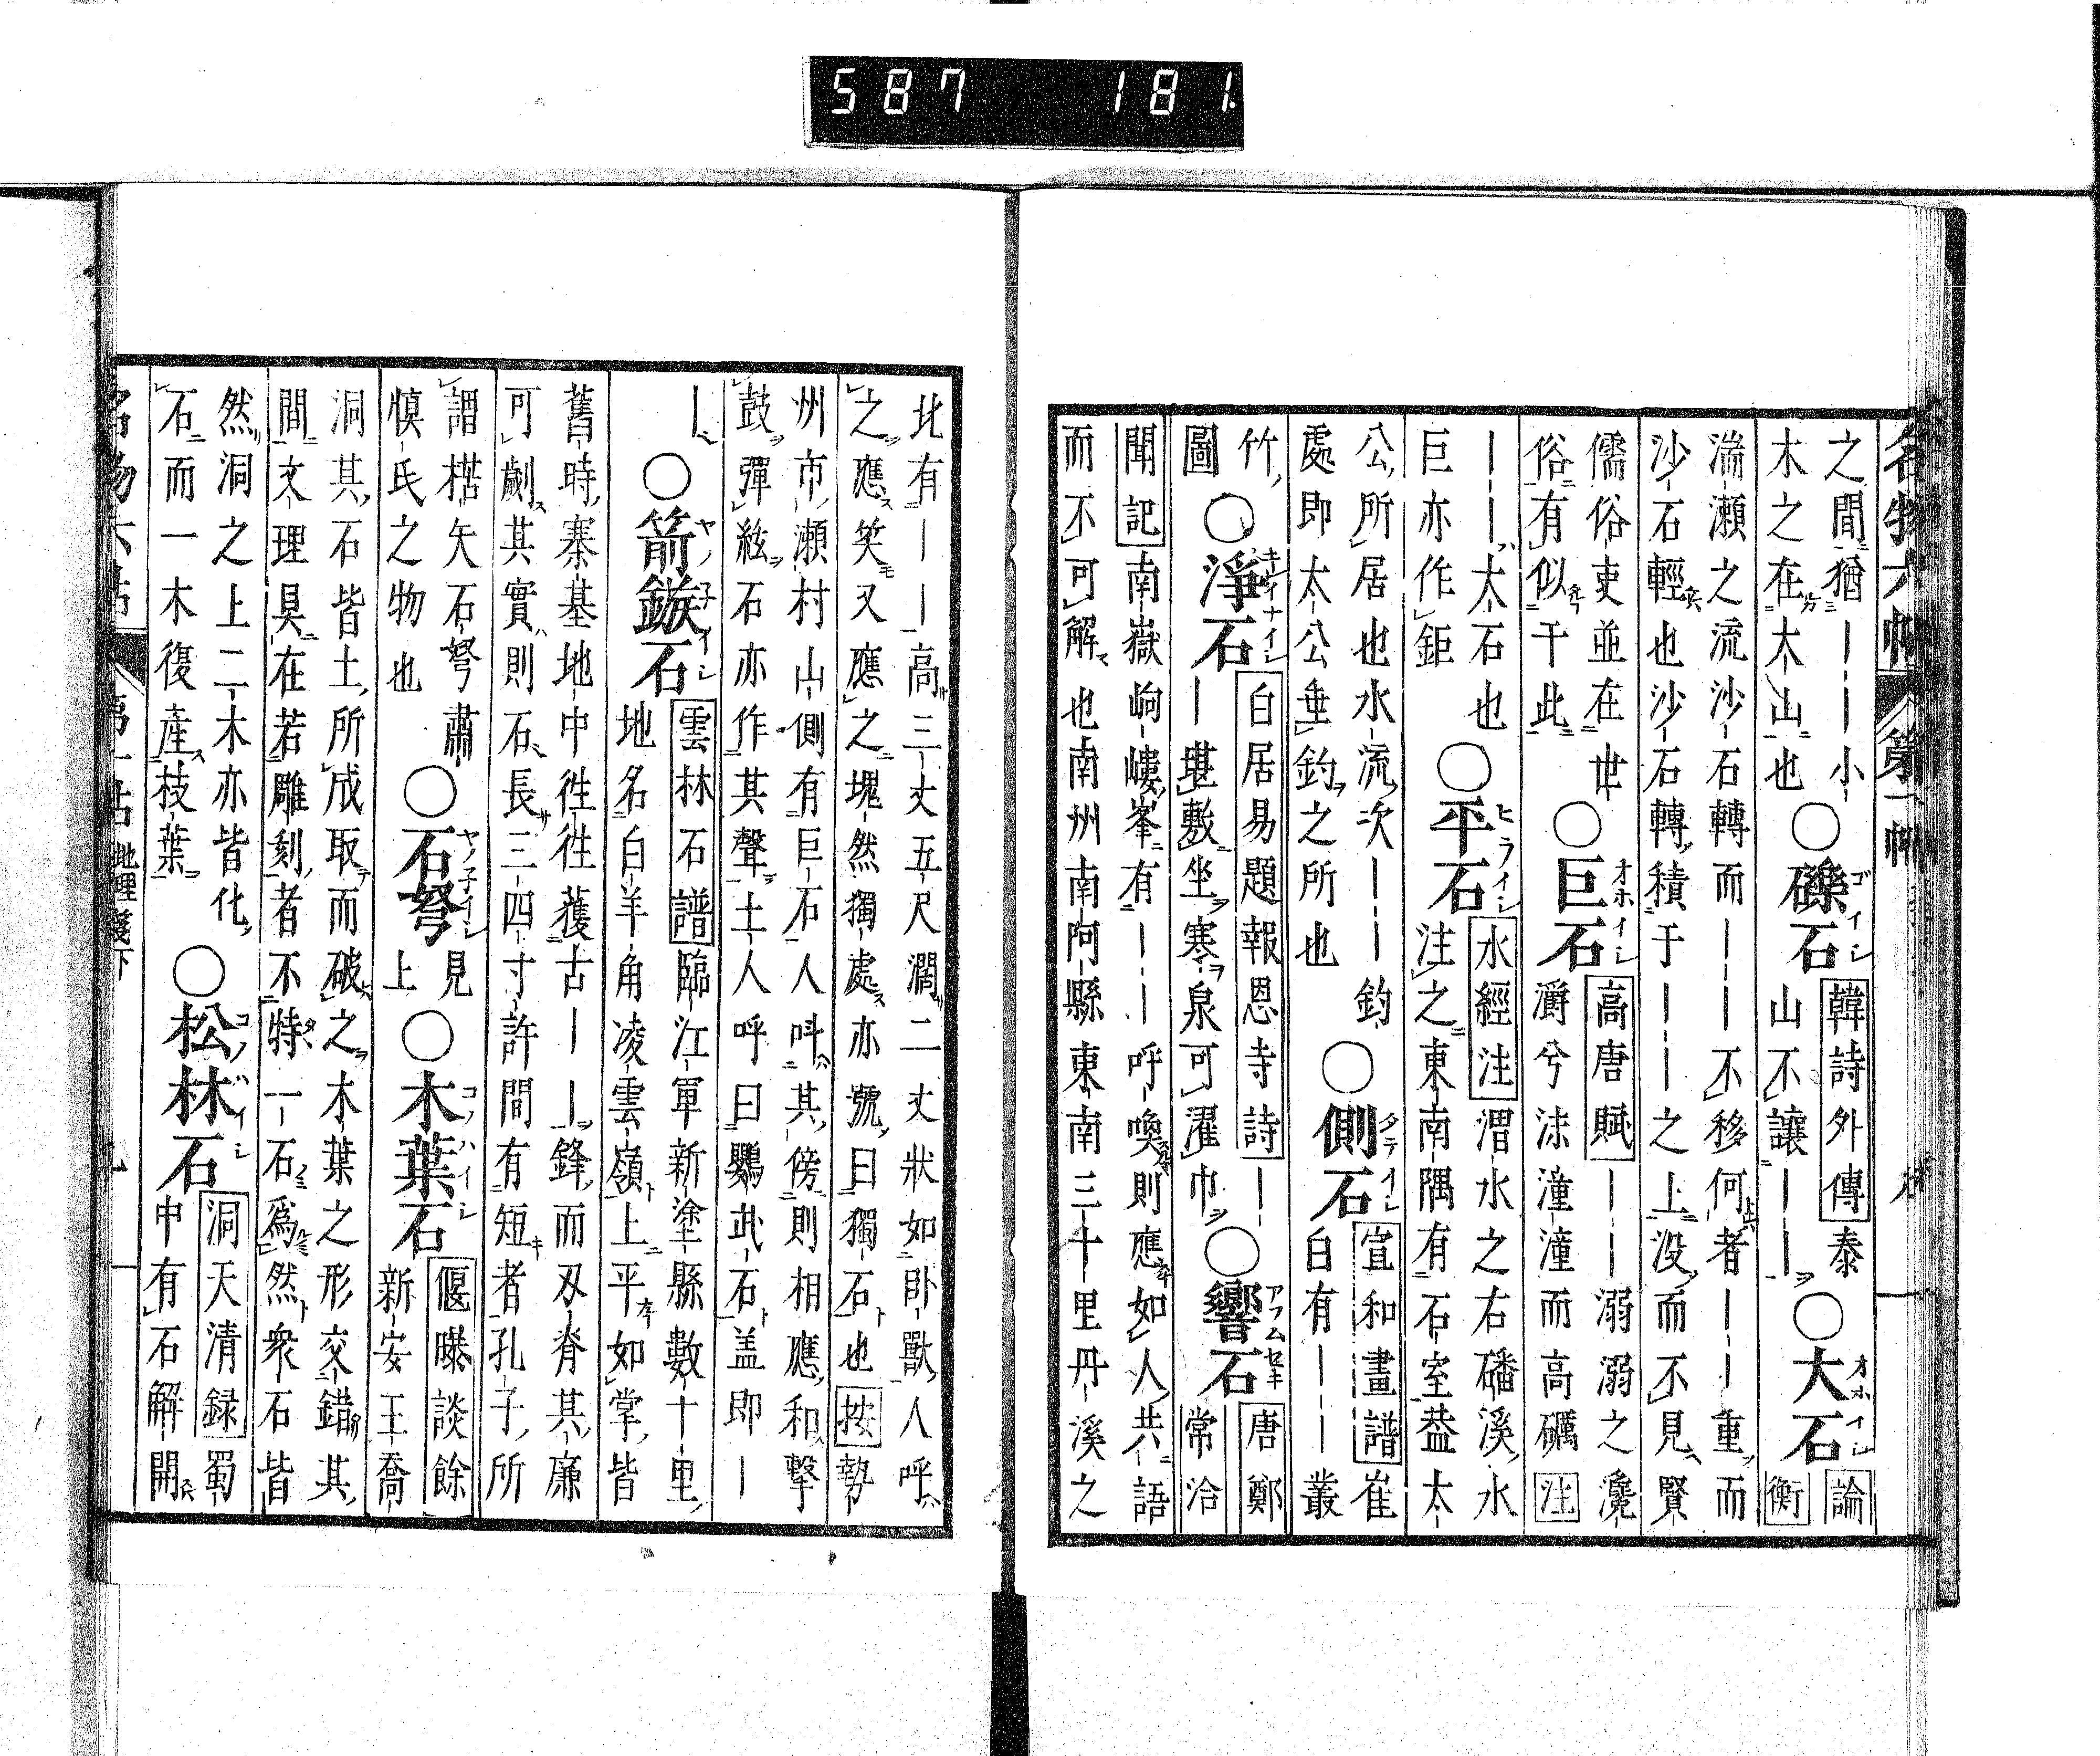 名物六帖 第一帖
之間猶｜｜小
木之在大山也
○礫石
韓詩外傳泰
山不讓｜｜
○大石
論
衡
湍瀬之流沙石轉而｜｜不移何者｜｜重而
沙石輕也沙石轉積于｜｜之上没而不見賢
儒俗吏並在世
俗有似于此
○巨石
高唐賦｜｜溺溺之瀺
灂兮沫潼潼而高礪注
｜｜大石也
巨亦作鉅
○平石
水經注渭水之右磻溪水
注之東南隅有石室葢太
公所居也水流次｜｜釣
處即太公垂釣之所也
○側石
宣和畫譜崔
白有｜｜叢
竹
圖
○淨石
白居易題報恩寺詩｜
｜堪敷坐寒泉可濯巾
○響石
唐鄭
常洽
聞記南嶽岣嶁峯有｜｜呼喚則應如人共語
而不可解也南州南阿縣東南三十里丹溪之
北有｜｜高三丈五尺濶二丈狀如卧獸人呼
之應笑又應之塊然獨處亦號曰獨石也按勢
州市瀬村山側有巨石人呌其傍則相應和擊
鼓彈絃石亦作其聲土人呼曰鸚武石盖即｜
｜
○箭鏃石
雲林石譜臨江軍新塗縣數十里
地名白羊角凌雲嶺上平如掌皆
舊時寨基地中徃徃獲古｜｜鋒而刄脊其廉
可劌其實則石長三四寸許間有短者孔子所
謂楛矢石弩肅
慎氏之物也
○石弩
見
上
○木葉石
偃曝談餘
新安王喬
洞其石皆土所成取而破之木葉之形交錯其
間文理具在若雕刻者不特一石為然衆石皆
然洞之上二木亦皆化
石而一木復産枝葉
○松林石
洞天清録蜀
中有石解開
名物六帖 第一帖 地理箋下
587 181